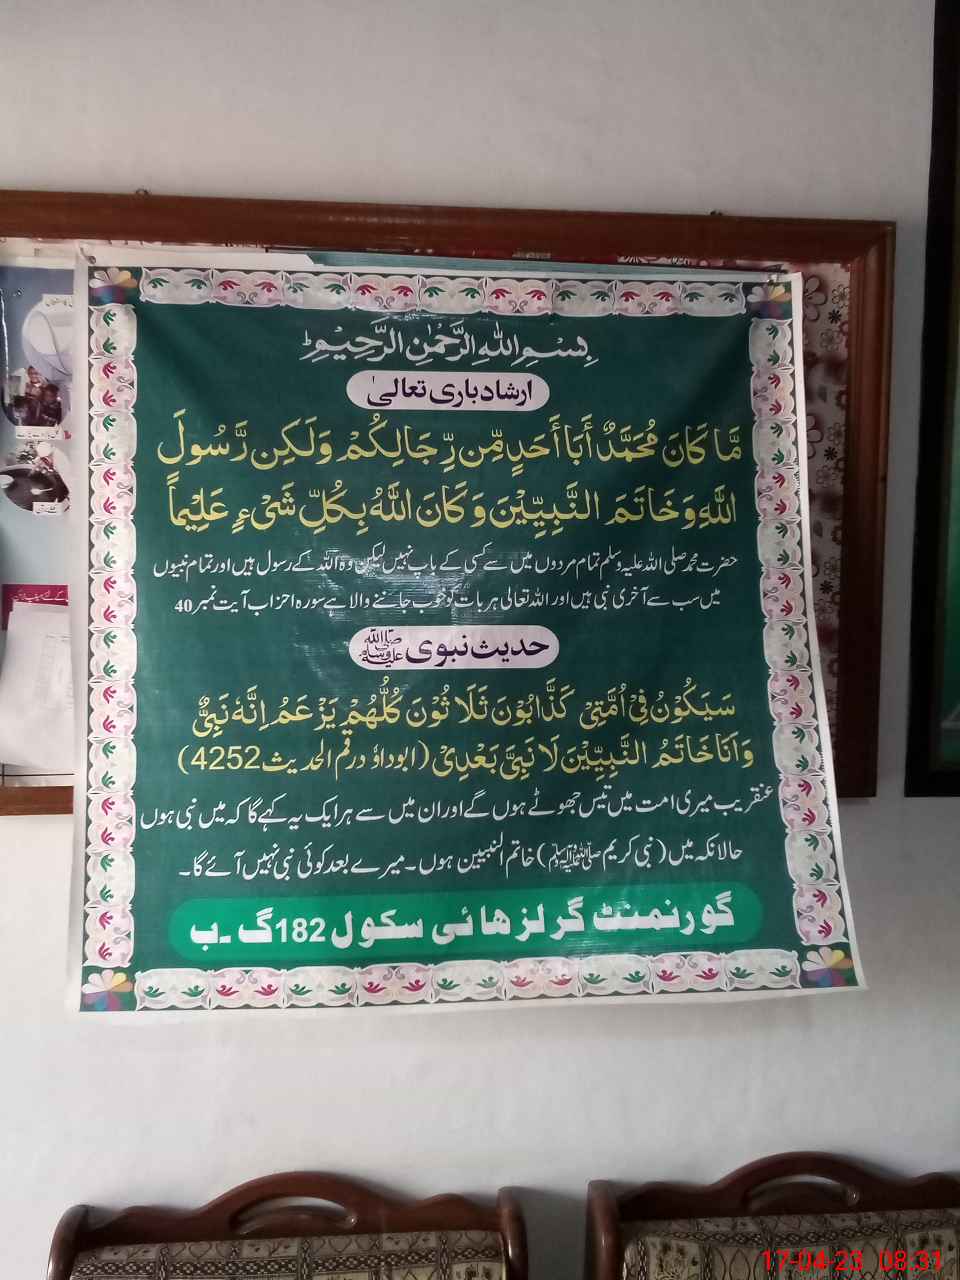 بِسْمِ اللهِ الرَّحْمٰنِ الرَّحِيْمِ
ارشاد باری تعالیٰ
مَّا كَانَ مُحَمَّدٌ أَبَا أَحَدٍ مِّن رِّجَالِكُمْ وَلَكِن رَّسُولَ
اللَّهِ وَخَاتَمَ النَّبِيِّيْنَ وَكَانَ اللَّهُ بِكُلِّ شَيْءٍ عَلِيْماً
حضرت محمد صلی اللہ علیہ وسلم تمام مردوں میں سے کسی کے باپ نہیں لیکن وہ اللہ کے رسول ہیں اور تمام نبیوں
میں سب سے آخری نبی ہیں اور اللہ تعالی ہر بات کو خوب جاننے والا ہے سورہ احزاب آیت نمبر 40
حدیث نبوی ﷺ
سَيَكُوْنُ فِيْ اُمَّتِيْ كَذَّابُوْنَ ثَلَاثُوْنَ كُلُّهُمْ يَزْعَمُ اِنَّهٗ نَبِيٌّ
وَاَنَا خَاتَمُ النَّبِيِّيْنَ لَا نَبِيَّ بَعْدِيْ (ابوداؤد رقم الحدیث 4252)
عنقریب میری امت میں تیس جھوٹے ہوں گے اور ان میں سے ہر ایک یہ کہے گا کہ میں نبی ہوں
حالانکہ میں (نبی کریم ﷺ) خاتم النبیین ہوں۔ میرے بعد کوئی نبی نہیں آئے گا۔
گورنمنٹ گرلز ھائی سکول 182 گ۔ب
17-04-23 08:31